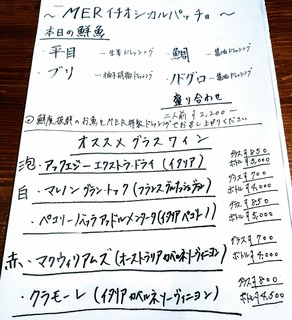 ～MERイチオシカルパッチョ～
本日の鮮魚
・平目 －生姜ドレッシング ・鯛 －醤油ドレッシング
・ブリ －柚子胡椒ドレッシング ・ノドグロ－醤油ドレッシング
盛り合わせ
二人前 ¥2,200～
鮮度抜群のお魚をMER特製ドレッシングでお召し上がりください
オススメグラスワイン
泡・アックエジーエクストラ・ドライ(イタリア) グラス¥850 ボトル¥5,000
白・マレノングラン・トック(フランス グラス¥700 ボトル¥4,000
・ペコリーノ(イタリア ペコリーノ) グラス¥850 ボトル¥5,000
赤・マクウィリアムズ(オーストラリア カベルネソーヴィニヨン) グラス¥700 ボトル¥4,000
・クラモーレ(イタリア カベルネソーヴィニヨン) グラス¥800 ボトル¥4,500